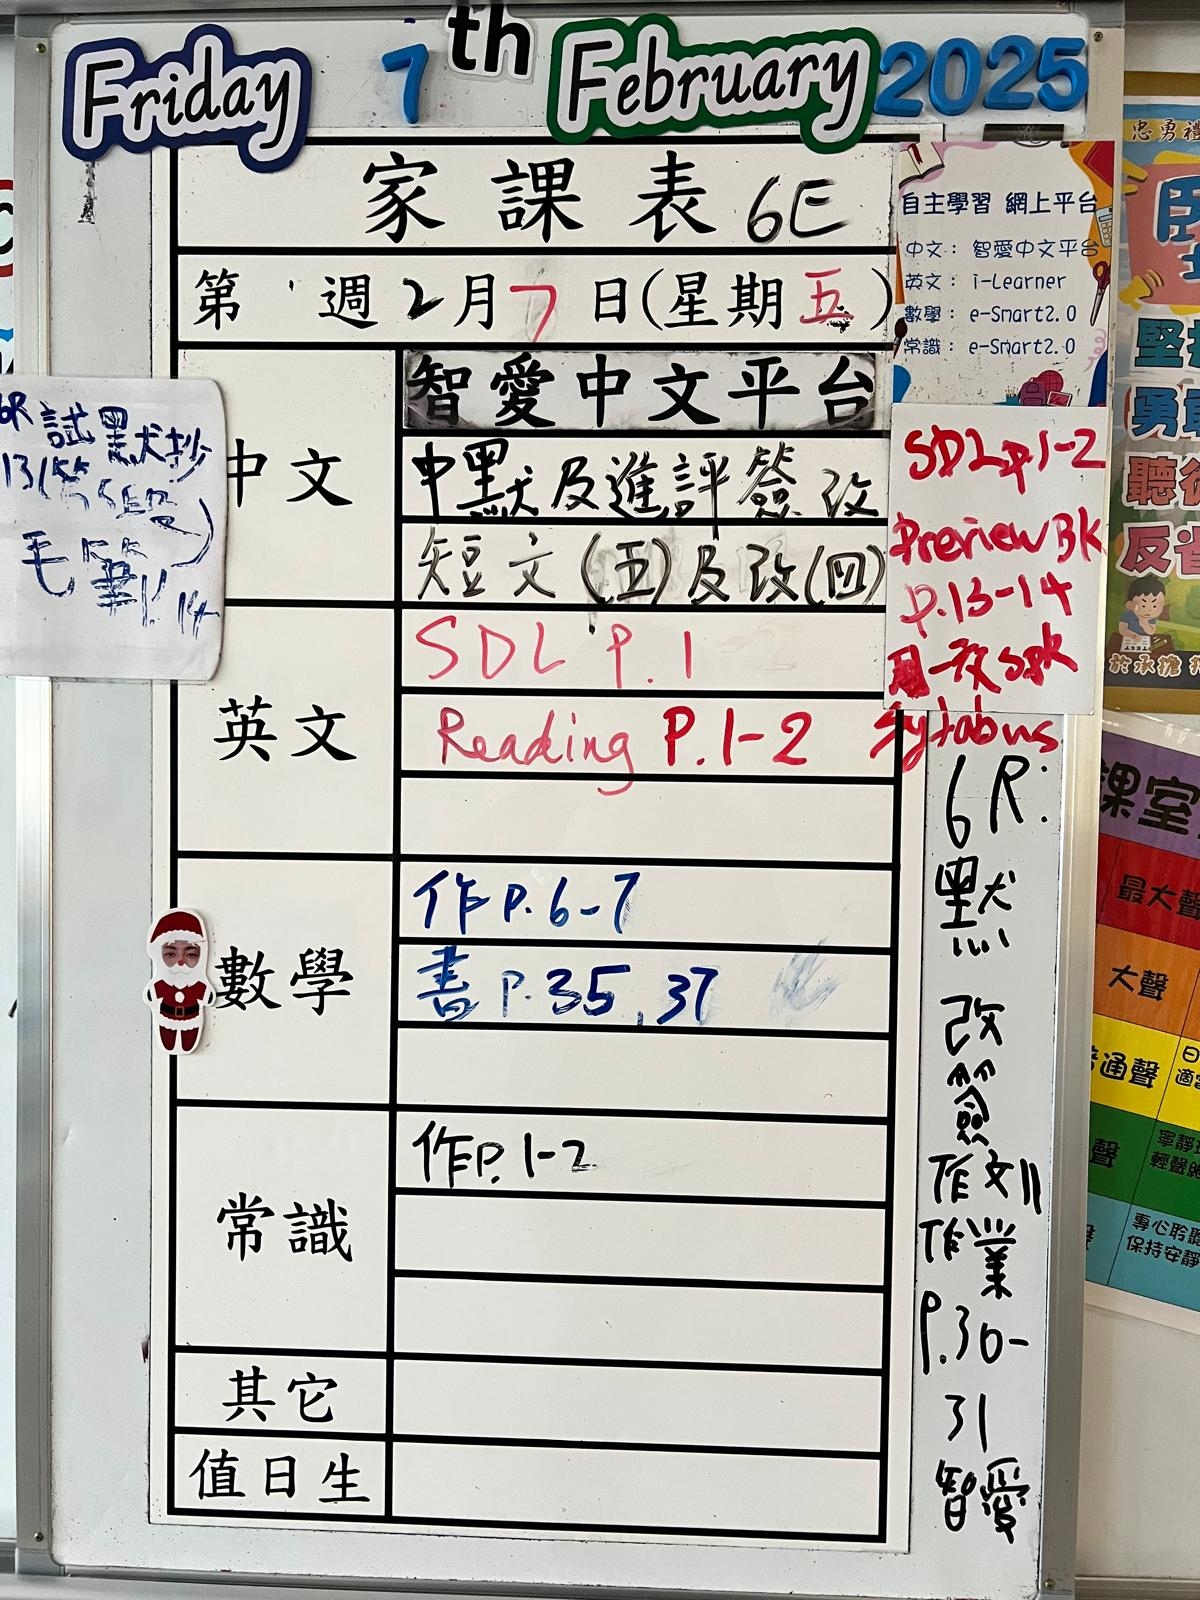 Friday 7th February 2025
家課表 6E
第 週 2月7日(星期五)
中文
智愛中文平台
中默及進評簽改
短文(五)及改(四)
英文
SDL P.1
Reading P.1-2
數學
作P.6-7
書P.35,37
常識
作P.1-2
其它
值日生
自主學習 網上平台
中文：智愛中文平台
英文：i-Learner
數學：e-Smart2.0
常識：e-Smart2.0
SDL P.1-2
Preview BK
P.13-14
Syllabus
6R:
默
改
簽
作文
作業
P.30-
31
智愛
6R 試默抄
毛筆
忠勇禮
堅
勇
聽
反省
課室
最大聲
大聲
通聲
聲
專心聆聽
保持安靜